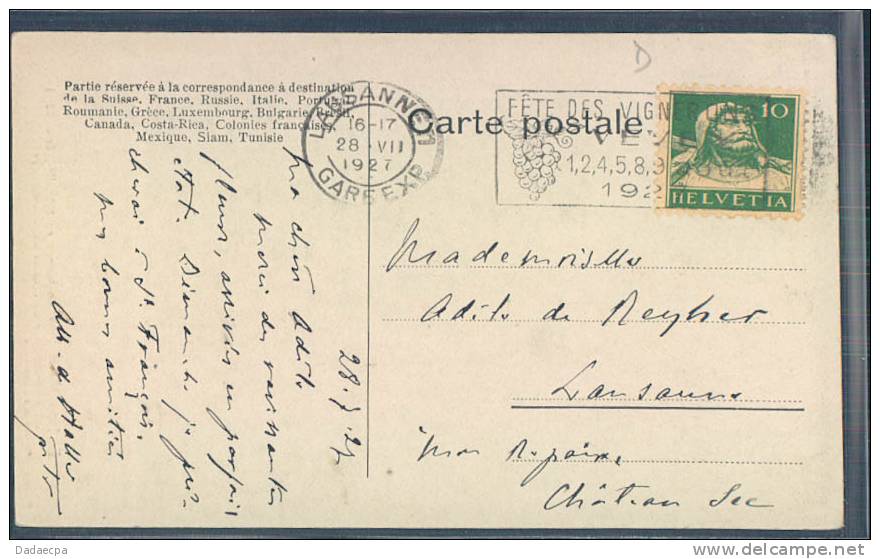 D
Partie réservée à la correspondance à destination
de la Suisse, France, Russie, Italie, Portugal,
Roumanie, Grèce, Luxembourg, Bulgarie, Brésil,
Canada, Costa-Rica, Colonies françaises,
Mexique, Siam, Tunisie
LAUSANNE 1
16-17
28 VII
1927
GARE EXP.
Carte postale
FÊTE DES VIGNERONS
VEVEY
1,2,4,5,8,9
192
10
HELVETIA
28.7.27
Ma chère Adile
Merci des ravissantes
fleurs, arrivées en parfait
état. Dimanche je prê-
cherai à St. François.
Mes bonnes amitiés
Mademoiselle
Adile de Reyher
Lausanne
Mon Repaire
Château Sec
Dadaecpa
http://www.delcampe.net